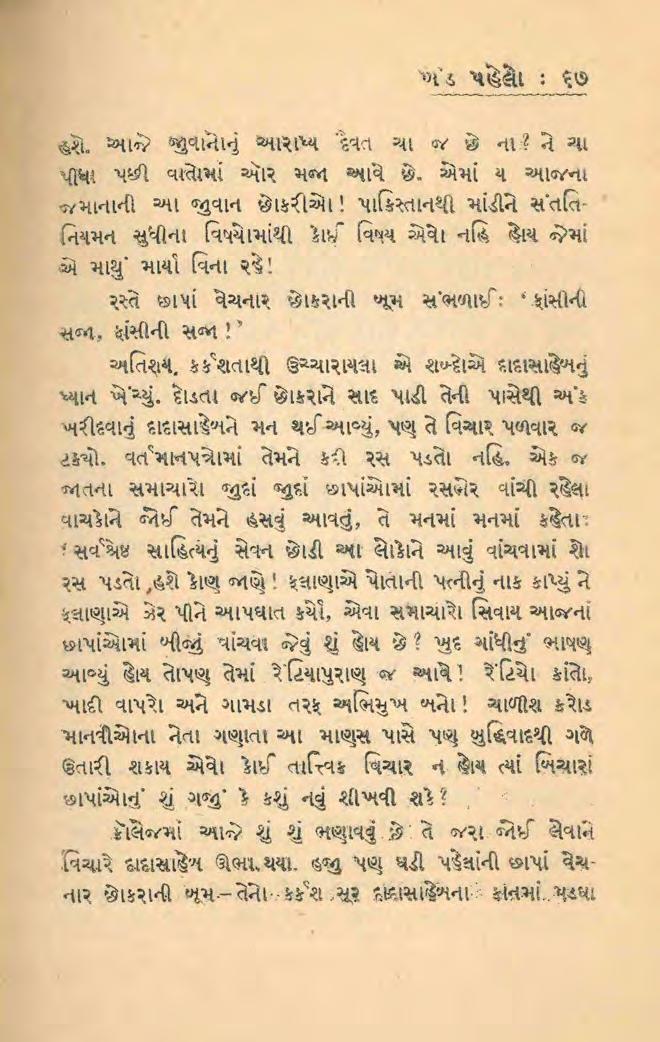 ખંડ પહેલો : ૬૭
હશે. આજે જુવાનોનું આરાધ્ય દૈવત ચા જ છે ના? ને ચા
પીધા પછી વાતોમાં ઓર મજા આવે છે. એમાં ય આજના
જમાનાની આ જુવાન છોકરીઓ! પાકિસ્તાનથી માંડીને સંતતિ-
નિયમન સુધીના વિષયોમાંથી કોઈ વિષય એવો નહિ હોય જેમાં
એ માથું માર્યા વિના રહે!
રસ્તે છાપાં વેચનાર છોકરાની બૂમ સંભળાઈ: ‘ફાંસીની
સજા, ફાંસીની સજા!’
અતિશય, કર્કશતાથી ઉચ્ચારાયલા એ શબ્દોએ દાદાસાહેબનું
ધ્યાન ખેંચ્યું. દોડતા જઈ છોકરાને સાદ પાડી તેની પાસેથી અંક
ખરીદવાનું દાદાસાહેબને મન થઈ આવ્યું, પણ તે વિચાર પળવાર જ
ટક્યો. વર્તમાનપત્રોમાં તેમને કદી રસ પડતો નહિ. એક જ
જાતના સમાચારો જુદાં જુદાં છાપાંઓમાં રસભેર વાંચી રહેલા
વાચકોને જોઈ તેમને હસવું આવતું, તે મનમાં મનમાં કહેતા:
‘સર્વશ્રેષ્ઠ સાહિત્યનું સેવન છોડી આ લોકોને આવું વાંચવામાં શો
રસ પડતો હશે કોણ જાણે! ફલાણાએ પોતાની પત્નીનું નાક કાપ્યું ને
ફલાણાએ ઝેર પીને આપઘાત કર્યો, એવા સમાચારો સિવાય આજનાં
છાપાંઓમાં બીજું વાંચવા જેવું શું હોય છે? ખુદ ગાંધીનું ભાષણ
આવ્યું હોય તોપણ તેમાં રેંટિયાપુરાણ જ આવે! રેંટિયો કાંતો,
ખાદી વાપરો અને ગામડા તરફ અભિમુખ બનો! ચાળીશ કરોડ
માનવીઓના નેતા ગણાતા આ માણસ પાસે પણ બુદ્ધિવાદથી ગળે
ઉતારી શકાય એવો કોઈ તાત્ત્વિક વિચાર ન હોય ત્યાં બિચારાં
છાપાંઓનું શું ગજું કે કશું નવું શીખવી શકે?
કૉલેજમાં આજે શું શું ભણાવવું છે તે જરા જોઈ લેવાને
વિચારે દાદાસાહેબ ઊભા થયા. હજુ પણ ઘડી પહેલાંની છાપાં વેચ-
નાર છોકરાની બૂમ—તેનો કર્કશ સૂર દાદાસાહેબના કાનમાં પડઘા